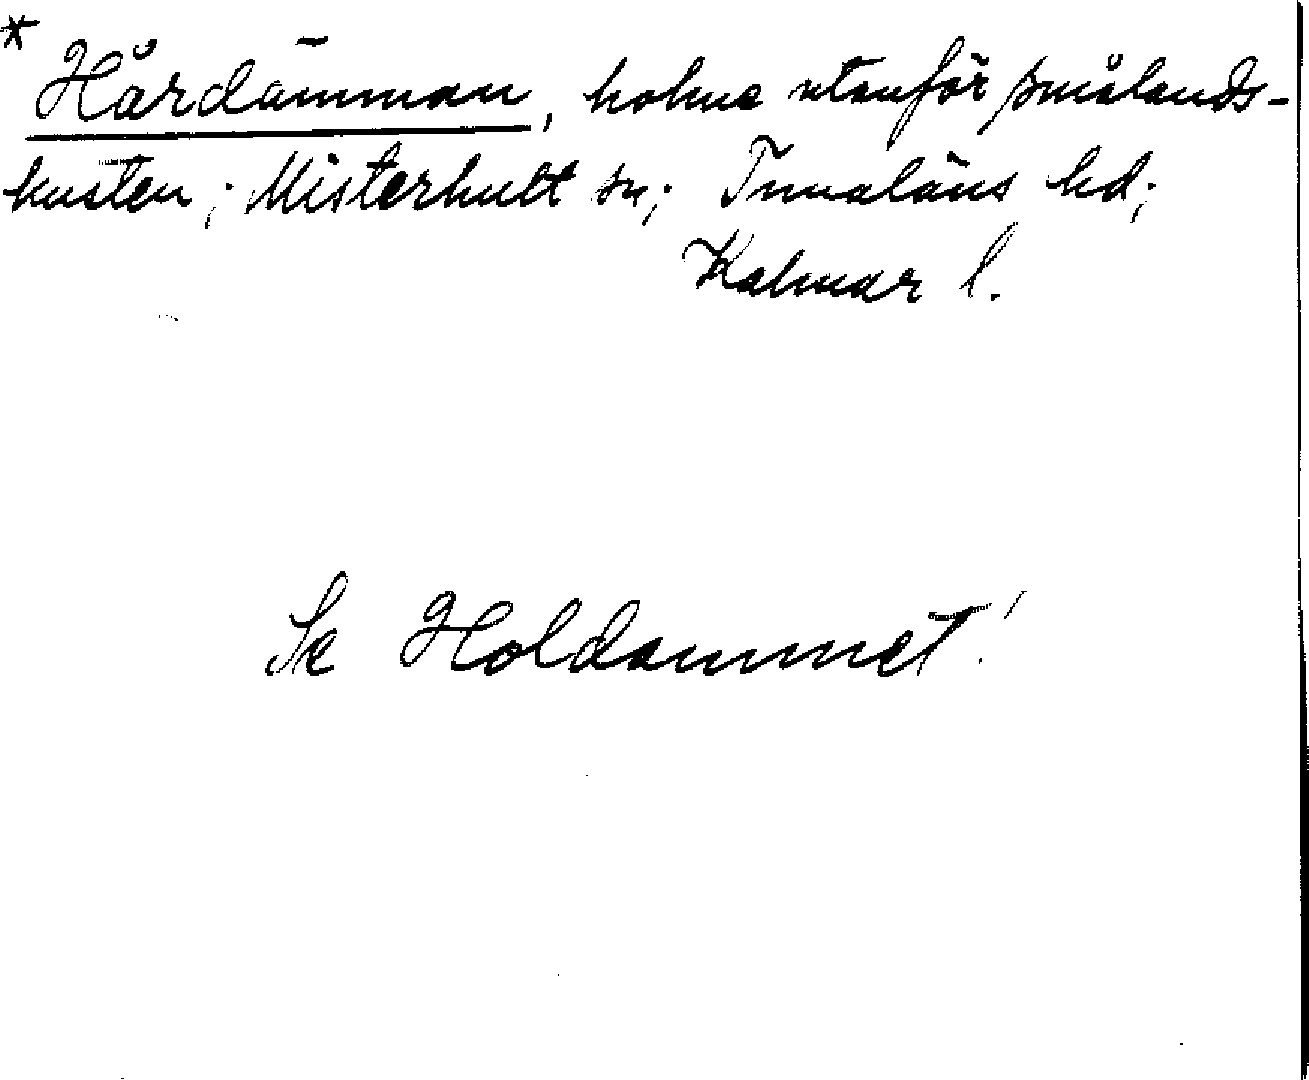 * Hårdämman, holme utanför smålands-
kusten; Misterhult sn; Tunaläns hd;
Kalmar l.
Se Holdammet!